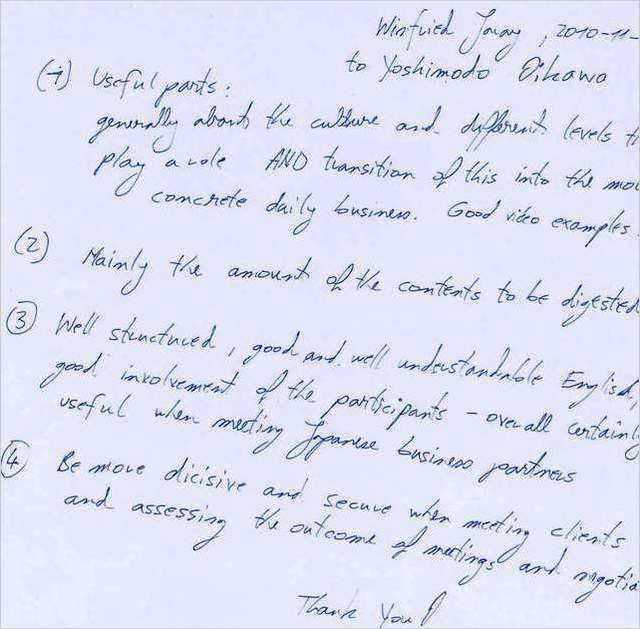 Winfried , 2010-11-
to Yoshimodo Oikawa
(1) Useful parts:
generally about the culture and different levels th
play a role AND transition of this into the mo
concrete daily business. Good video examples.
(2) Mainly the amount of the contents to be digested
(3) Well structured, good and well understandable English,
good involvement of the participants - overall certainly
useful when meeting Japanese business partners
(4) Be more dicisive and secure when meeting clients
and assessing the outcome of meetings and negotia
Thank You!